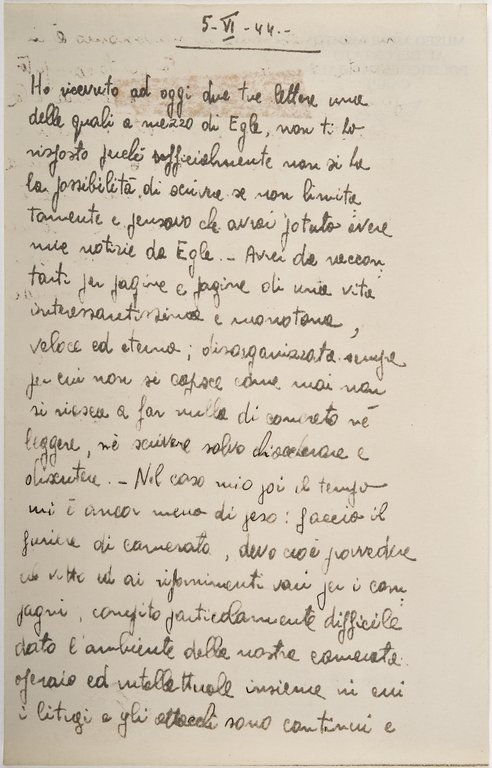 5-VI-44.-
Ho ricevuto ad oggi due tue lettere una
delle quali a mezzo di Egle, non ti ho
risposto perché ufficialmente non si ha
la possibilità di scrivere se non limita
tamente e pensavo che avrai potuto avere
mie notizie da Egle. - Avrei da raccon
tarti per pagine e pagine di una vita
interessantissima e monotona,
veloce ed eterna; disorganizzata sempre
per cui non si capisce come mai non
si riesca a far nulla di concreto nè
leggere, nè scrivere salvo chiacchierare e
discutere. - Nel caso mio poi il tempo
mi è ancor meno di peso: faccio il
furiere di camerata, devo cioè provvedere
al vitto ed ai rifornimenti vari per i com
pagni, compito particolarmente difficile
dato l'ambiente della nostra camerata
operaio ed intellettuale insieme in cui
i litigi e gli attacchi sono continui e